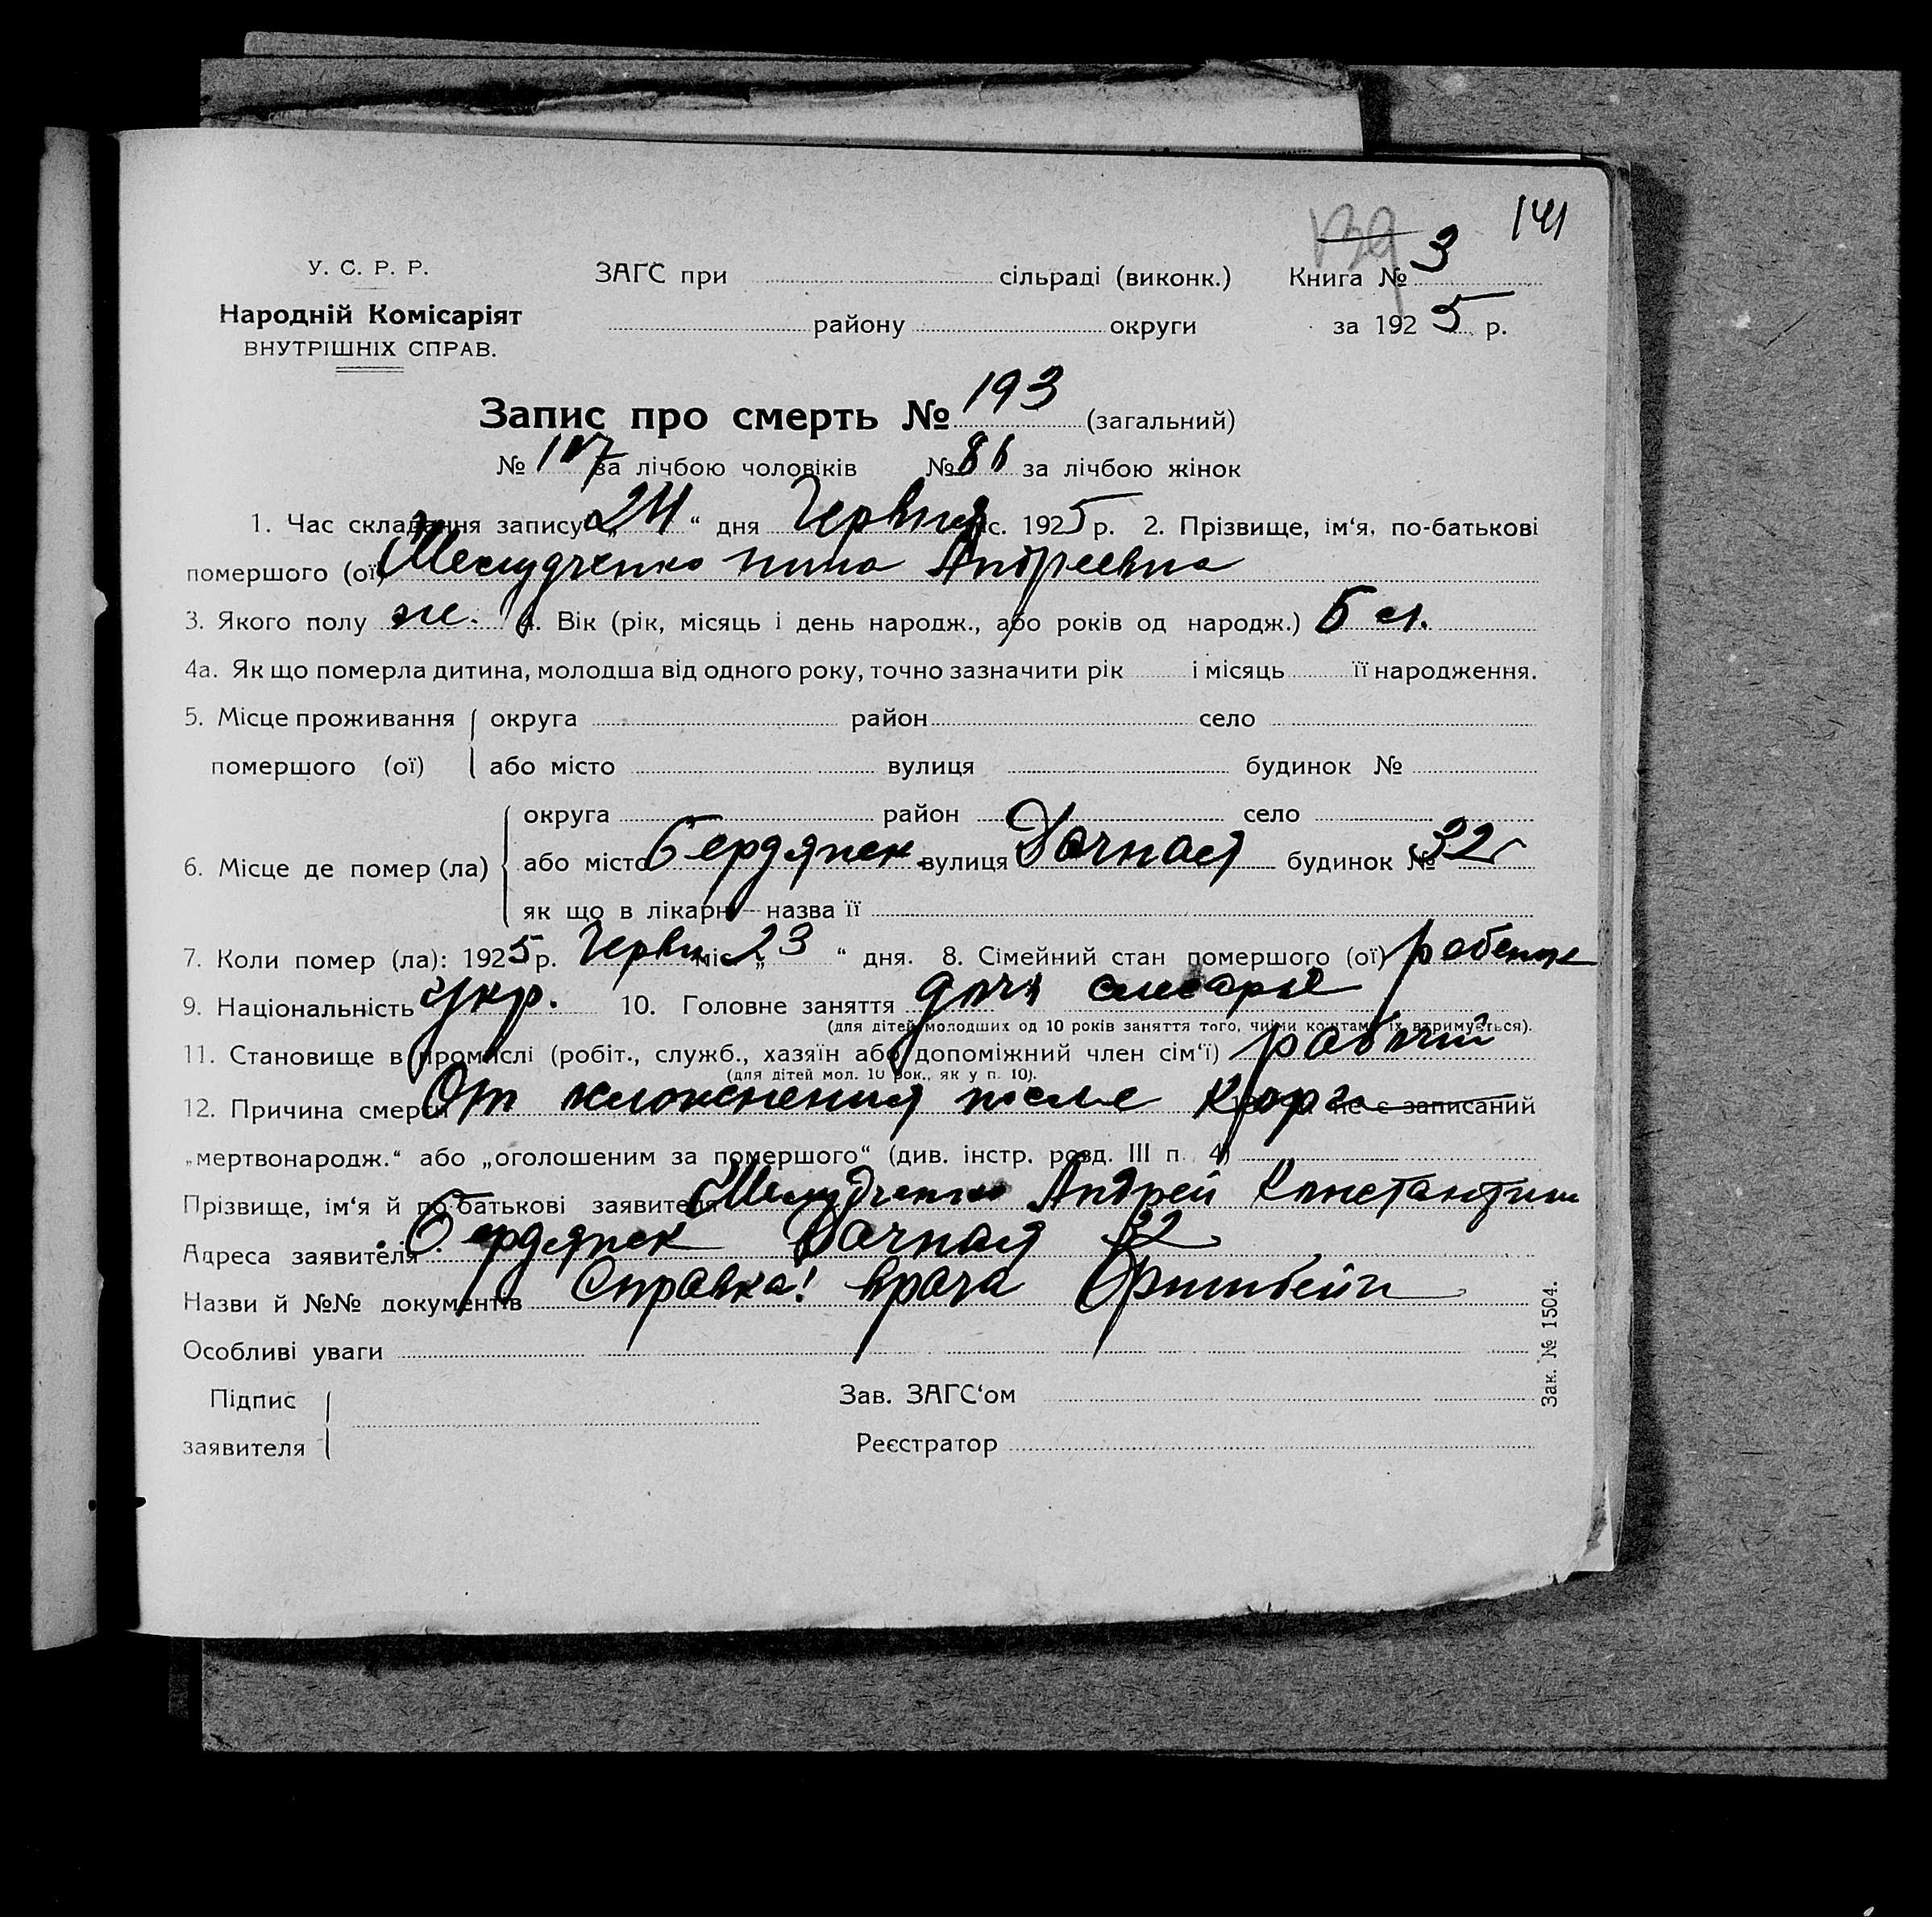 139 141
У. С. Р. Р. ЗАГС при сільраді (виконк.) Книга № 3
Народній Комісаріят району округи за 1925 р.
ВНУТРІШНІХ СПРАВ.
Запис про смерть № 193 (загальний)
№ 107 за лічбою чоловіків № 86 за лічбою жінок
1. Час складання запису „24“ дня Червня міс. 1925 р. 2. Прізвище, ім‘я, по-батькові
помершого (ої) Нина Андреевна
3. Якого полу ж. 4. Вік (рік, місяць і день народж., або років од народж.) 5 л.
4а. Як що померла дитина, молодша від одного року, точно зазначити рік і місяць її народження.
5. Місце проживання округа район село
помершого (ої) або місто вулиця будинок №
округа район село
6. Місце де помер (ла) або місто Бердянск вулиця Дачная будинок № 32
як що в лікарні—назва її
7. Коли помер (ла): 1925 р. Червн міс. „23“ дня. 8. Сімейний стан помершого (ої) ребенок
9. Національність укр. 10. Головне заняття дочь слесаря
(для дітей молодших од 10 років заняття того, чиїми коштами їх втримується).
11. Становище в промислі (робіт., служб., хазяїн або допоміжний член сім‘ї) рабочий
(для дітей мол. 10 рок., як у п. 10).
12. Причина смерти От осложнения после кори не є записаний
„мертвонародж.“ або „оголошеним за помершого“ (див. інстр. розд. III п. 4)
Прізвище, ім‘я й по-батькові заявителя Андрей Константин
Адреса заявителя Бердянск Дачная 32
Назви й №№ документів Справка! врача
Особливі уваги
Підпис Зав. ЗАГС‘ом
заявителя Реєстратор
Зак. № 1504.